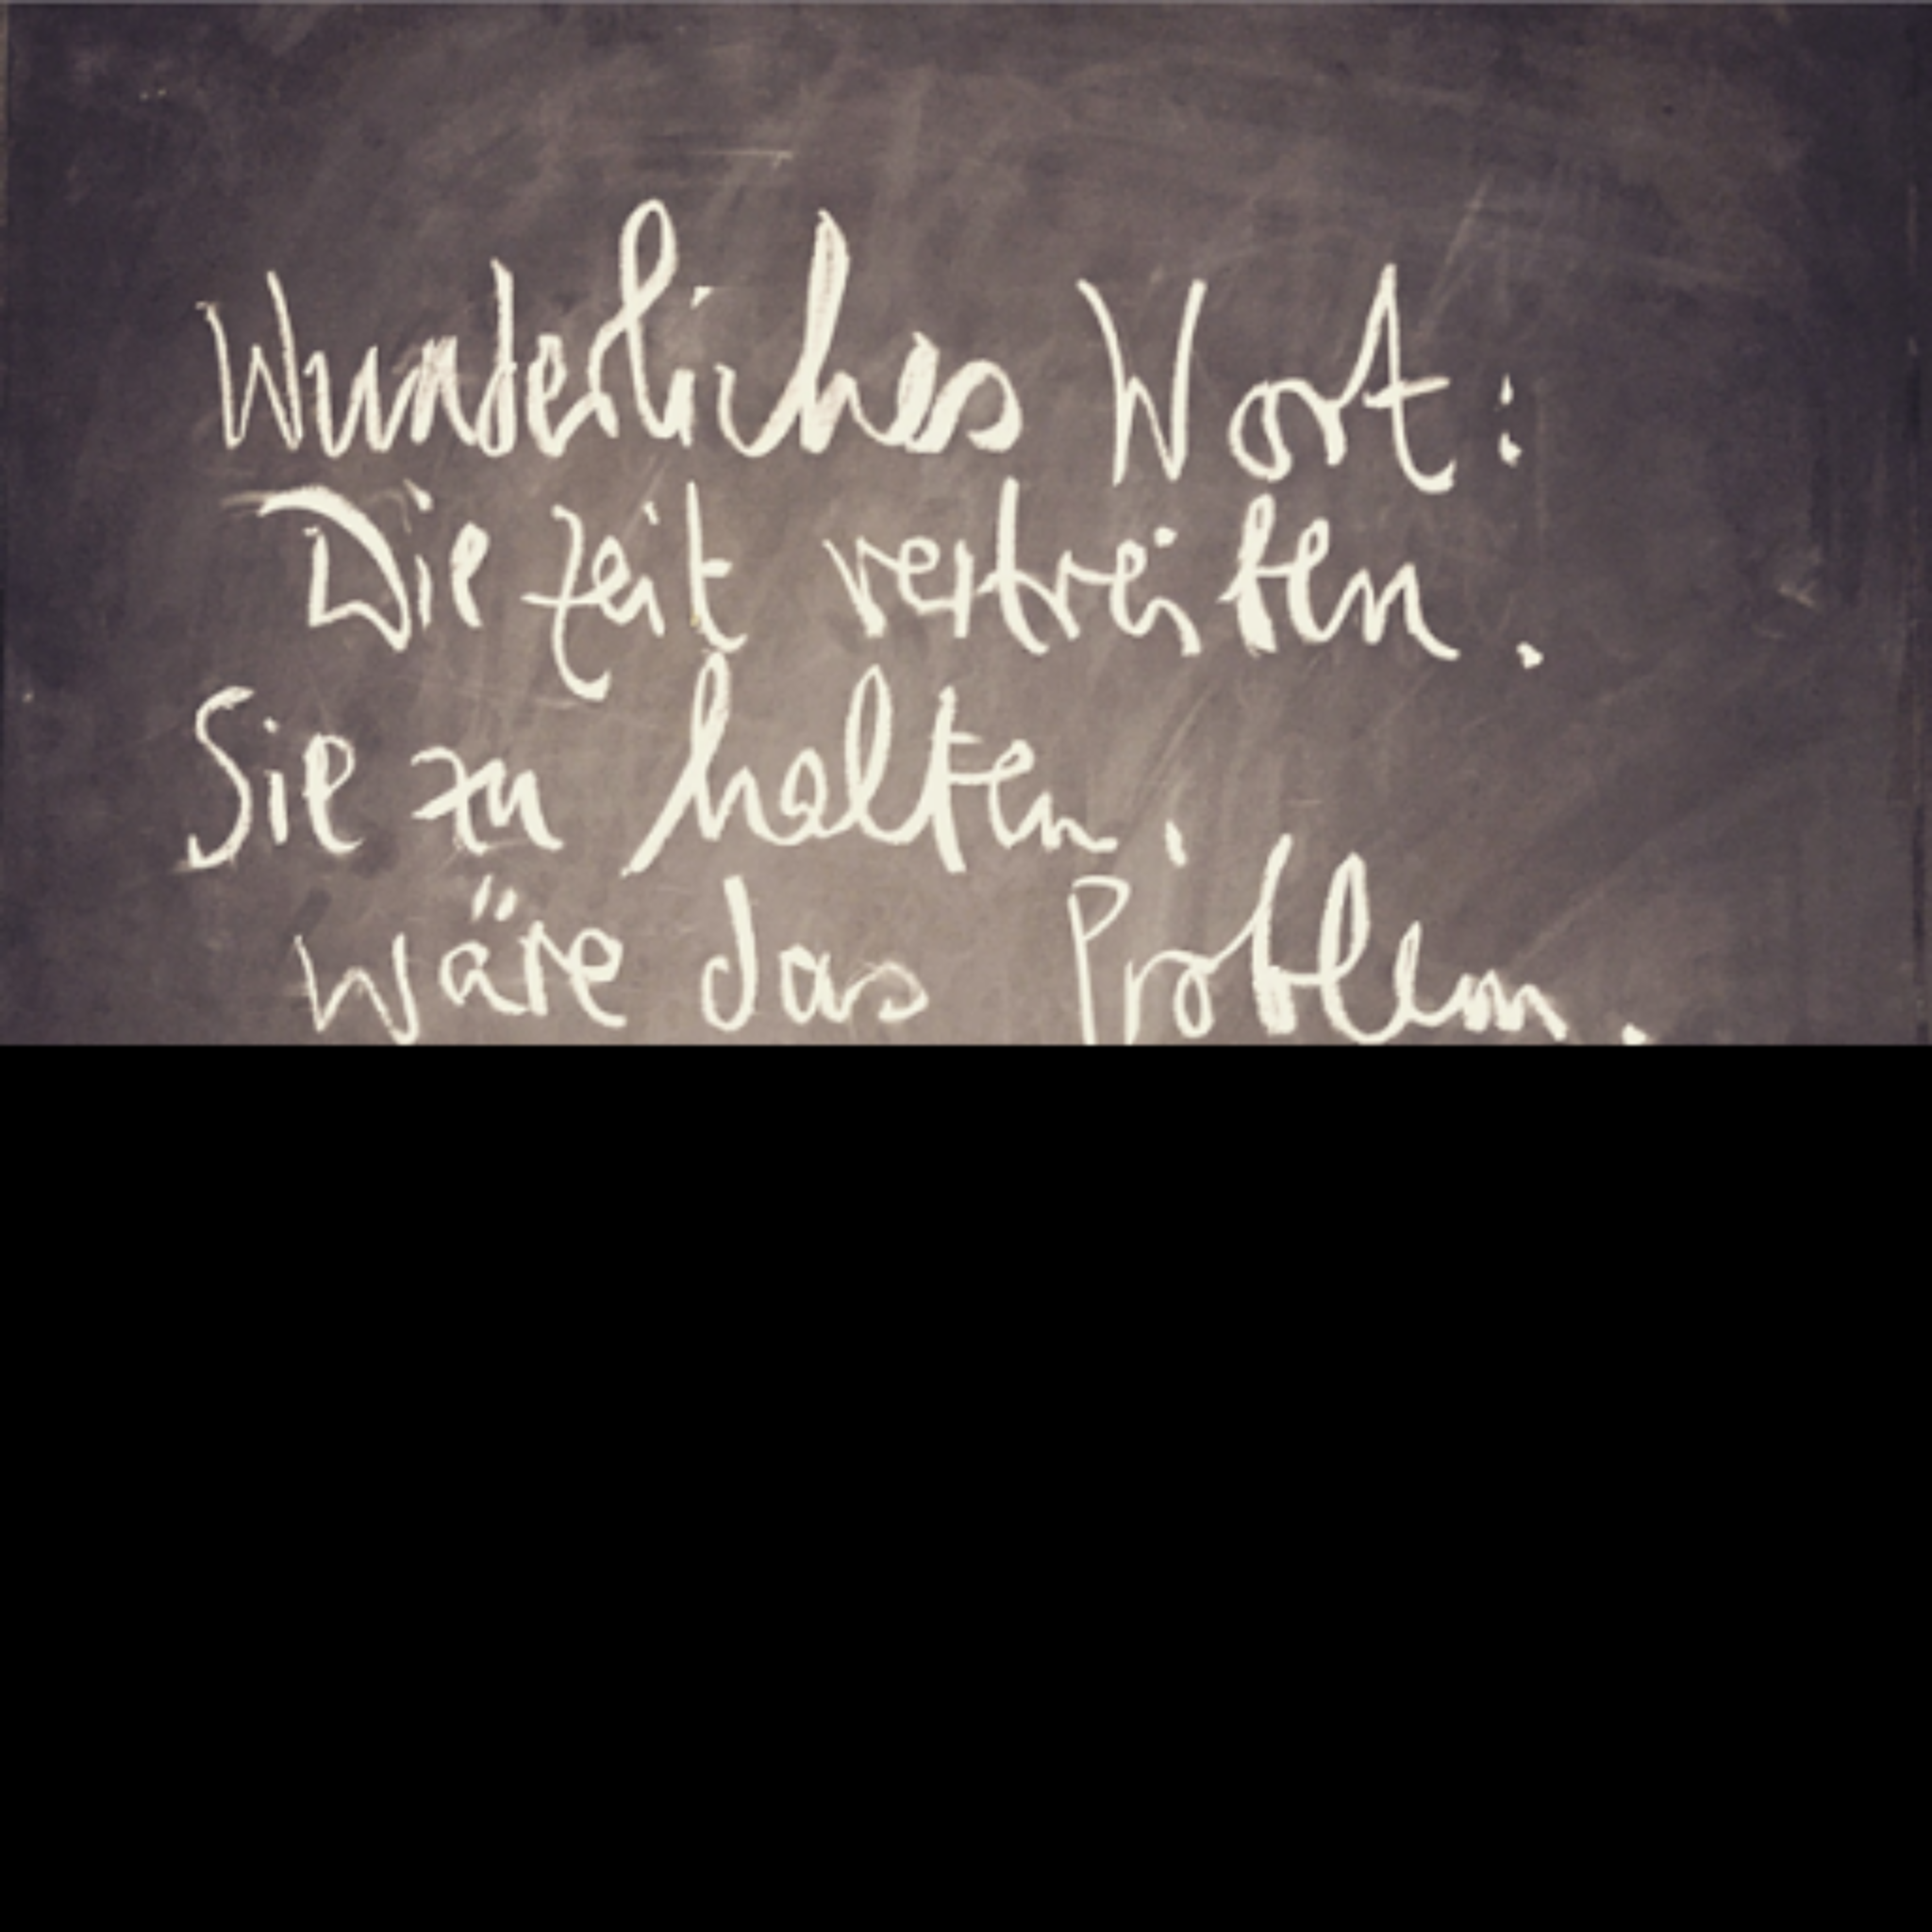 Wunderliches Wort:
Die Zeit vertreiben.
Sie zu halten,
wäre das Problem.